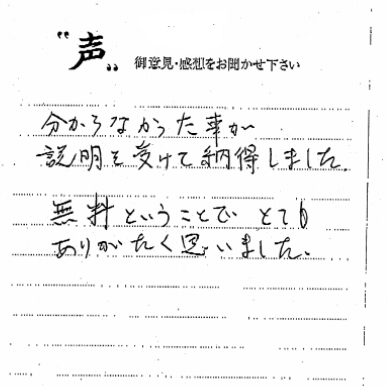 "声" 御意見・感想をお聞かせ下さい
分からなかった事が
説明を受けて納得しました。
無料ということで とても
ありがたく思いました。